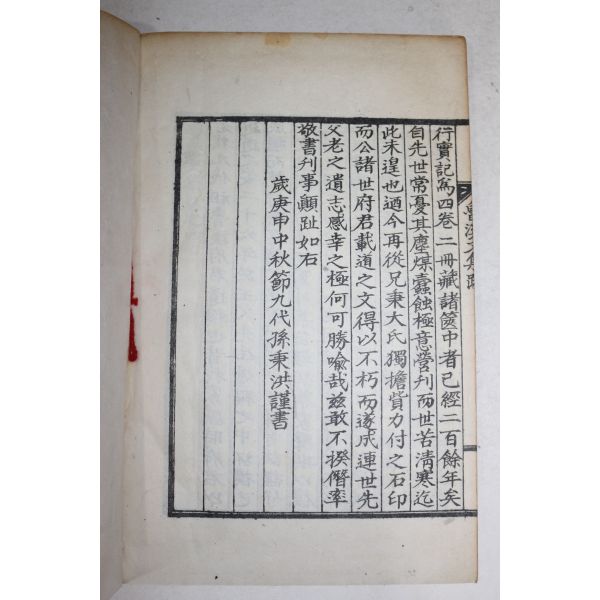 行實記爲四卷二冊藏諸篋中者已經二百餘年矣
自先世常憂其塵煤蠹蝕極意營刊而世苦清寒迄
此未遑也迺今再從兄秉大氏獨擔貲力付之石印
而公諸世府君載道之文得以不朽而遂成連世先
父老之遺志感幸之極何可勝喩哉玆敢不揆僭率
敬書刊事顚趾如右
歲庚申中秋節九代孫秉洪謹書